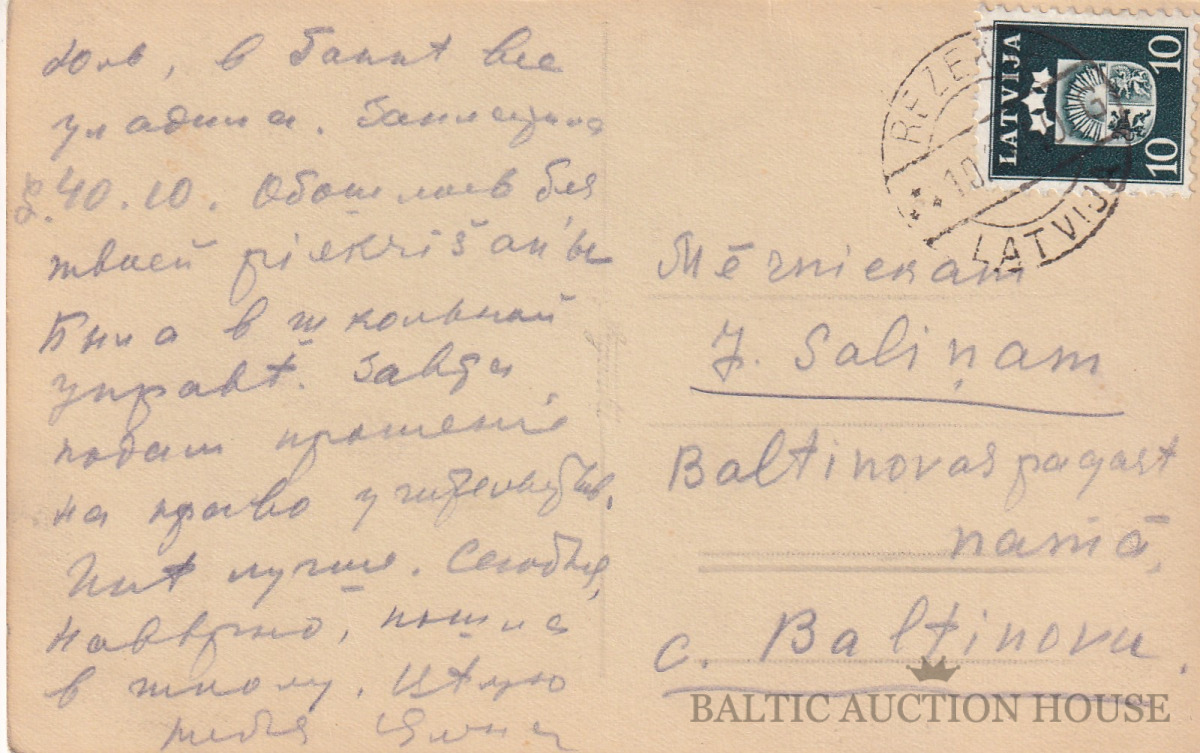 Юль, в банкѣ все
уладила. Заплатила
40.10. Обошлось без
твоей piekrišan'ы
Была в школьной
управѣ. Завтра
подам прошеніе
на право учительств.
Инѣ лучше. Сегодня,
навѣрно, пошла
в школу. Цѣлую
тебя
REZEKNE
LATVIJA
LATVIJA
10 10
Mērniekam
J. Saliņam
Baltinovas pagast
namā,
c. Baltinovu.
BALTIC AUCTION HOUSE